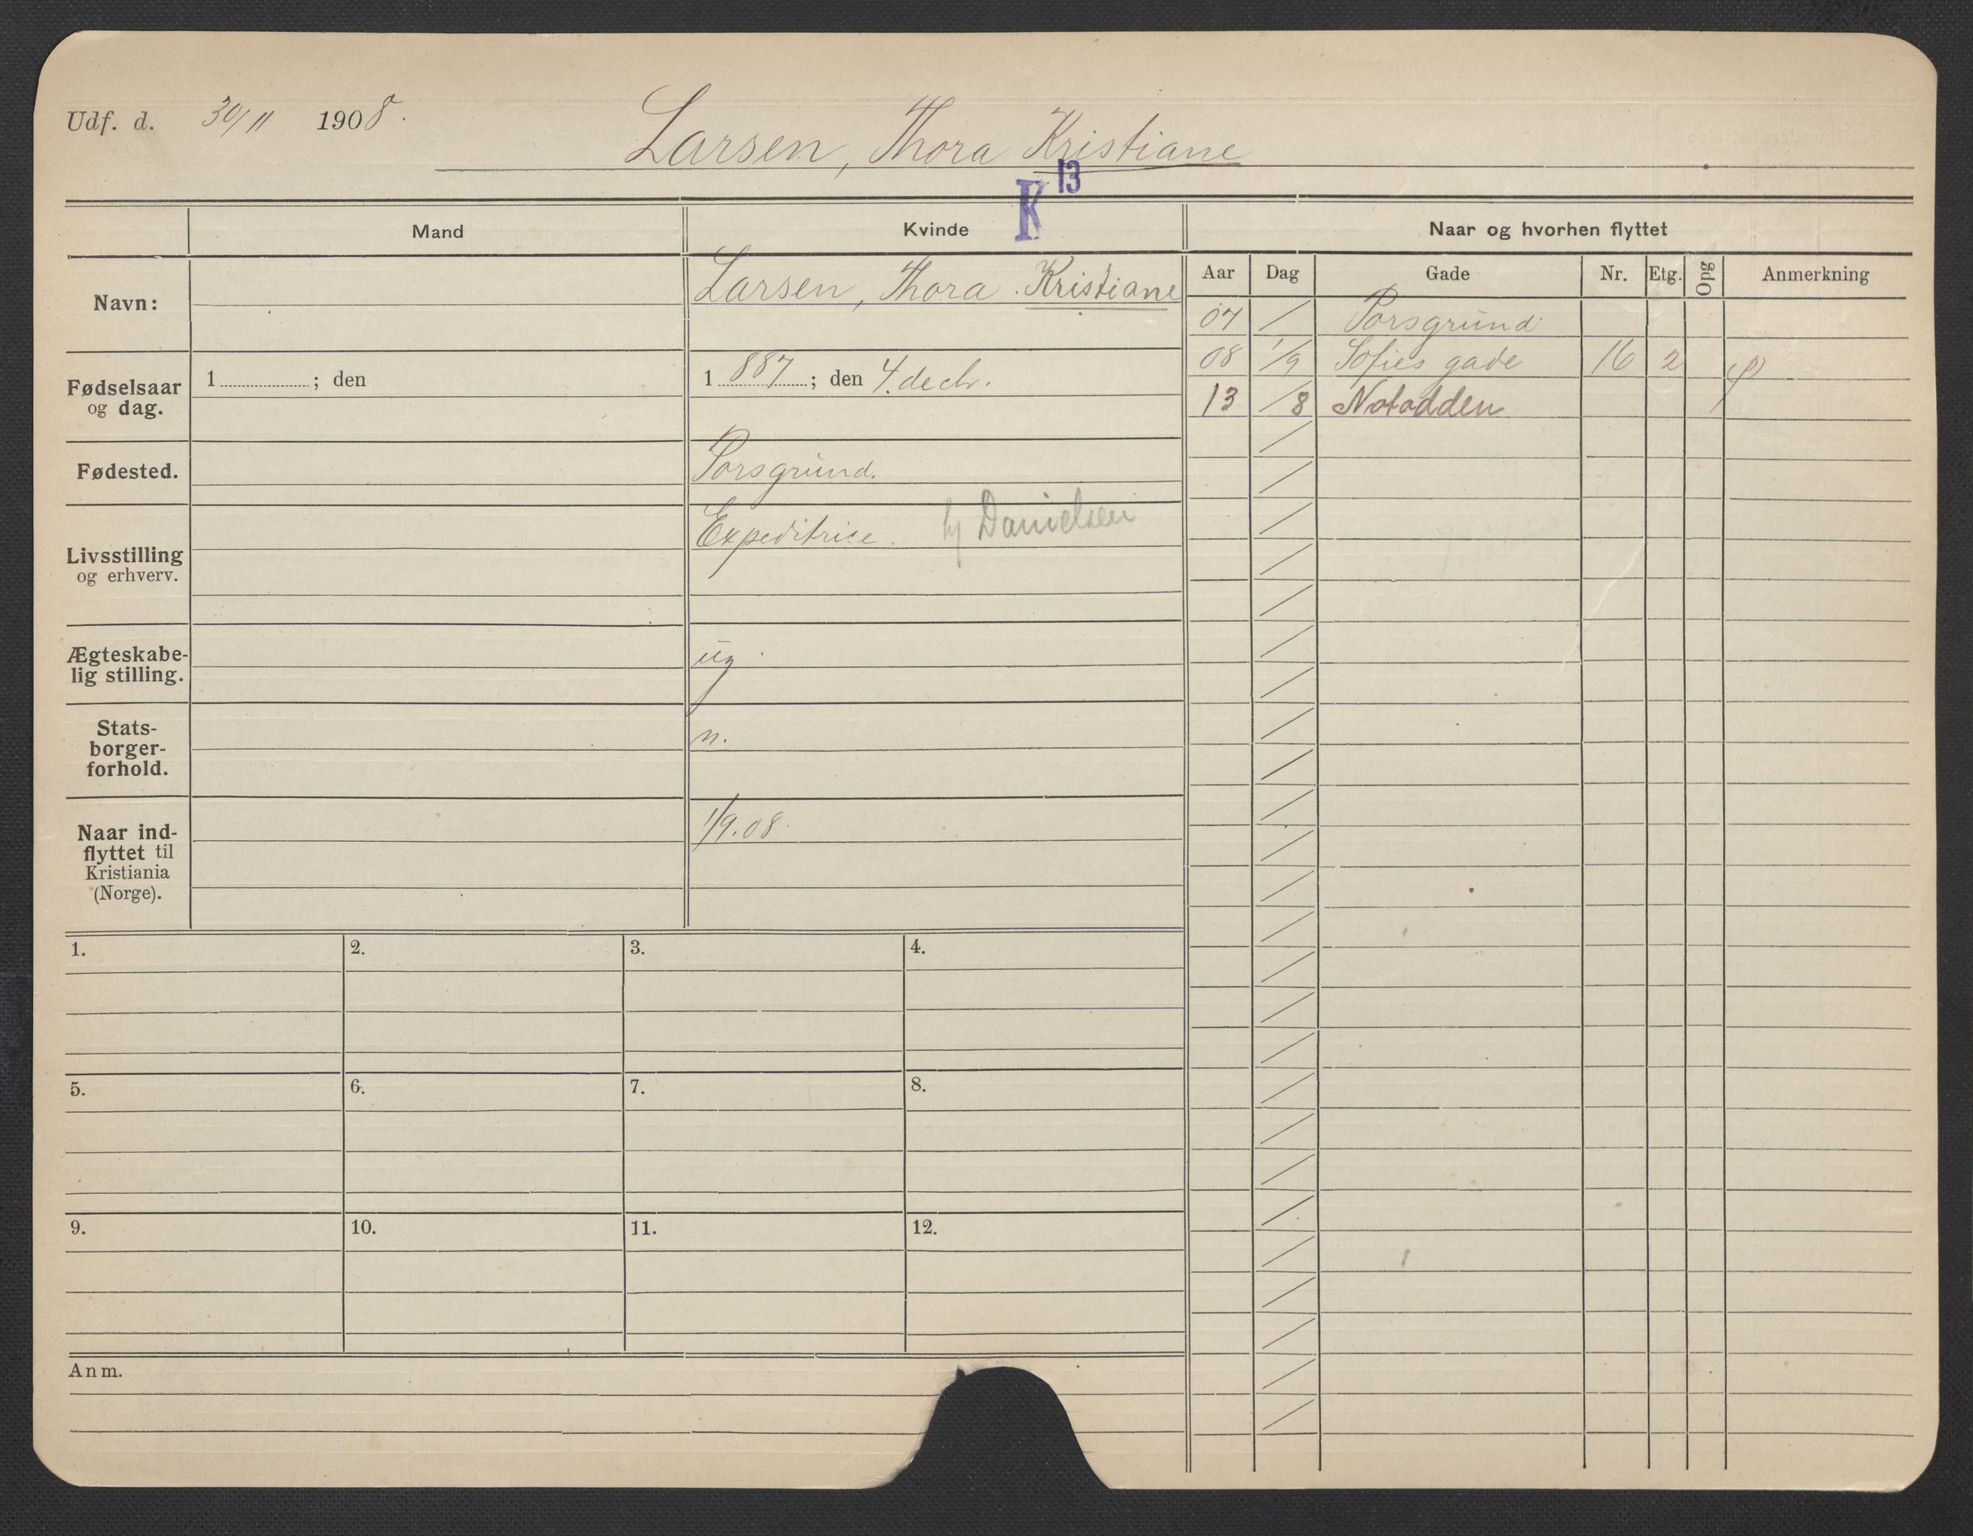 Udf. d. 30/11 1908.
Larsen, Thora Kristiane
K 13
Mand
Kvinde
Naar og hvorhen flyttet
Aar Dag Gade Nr. Etg. Opg Anmerkning
Navn:
Larsen, Thora Kristiane
07 / Porsgrund
08 1/9 Sofies gade 16 2
13 /8 Notodden
Fødselsaar
og dag.
1 ; den
1887; den 4. decbr.
Fødested.
Porsgrund.
Livsstilling
og erhverv.
Expeditrice. Danielsen
Ægteskabe-
lig stilling.
ug.
Stats-
borger-
forhold.
n.
Naar ind-
flyttet til
Kristiania
(Norge).
1/9.08.
1. 2. 3. 4.
5. 6. 7. 8.
9. 10. 11. 12.
Anm.